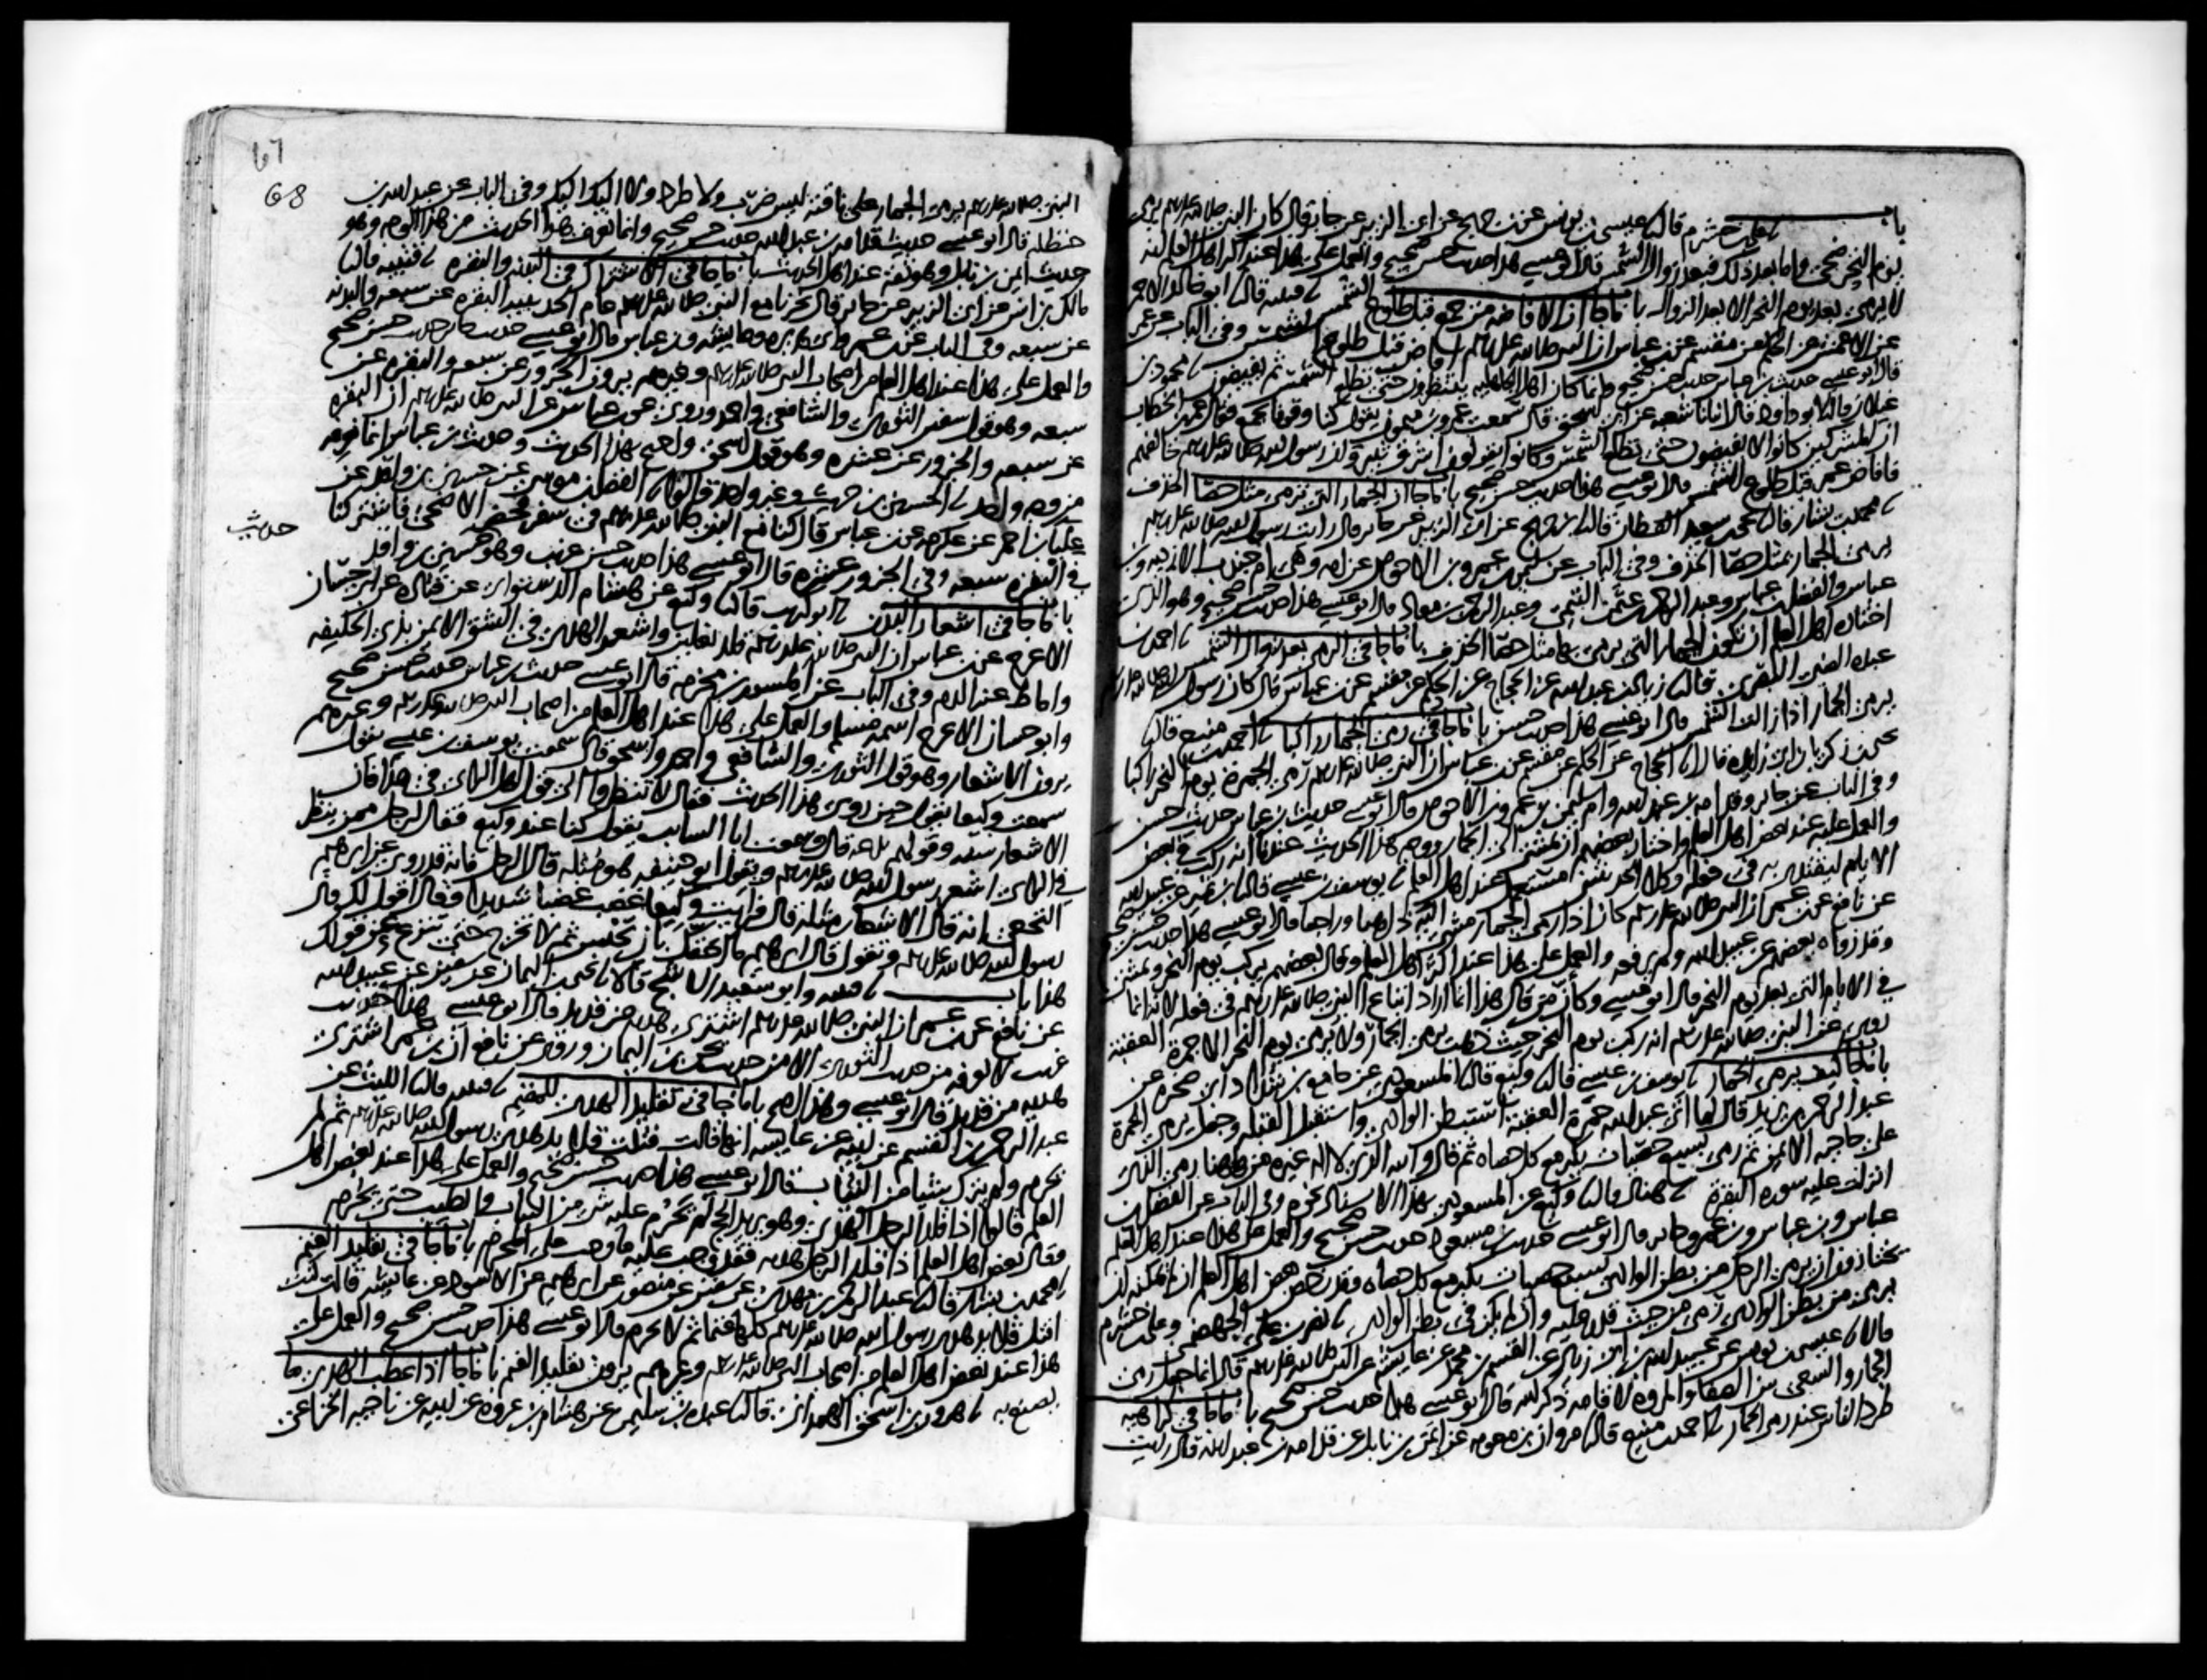 باب
علي بن خشرم قال نا عيسى بن يونس عن بن جريج عن ابي الزبير عن جابر قال كان النبي صلى الله عليه وسلم يرمي
يوم النحر ضحى واما بعد ذلك فبعد زوال الشمس قال ابو عيسى هذا حديث حسن صحيح والعمل على هذا عند اكثر اهل العلم انه
لا يرمي بعد يوم النحر الا بعد الزوال باب ما جا ان الافاضه من جمع قبل طلوع الشمس نا قتيبه قال نا ابو خالد الاحمر
عن الاعمش عن الحكم عن مقسم عن بن عباس ان النبي صلى الله عليه وسلم افاض قبل طلوع الشمس وفي الباب عن عمر
قال ابو عيسى حديث بن عباس حديث حسن صحيح وانما كان اهل الجاهليه ينتظرون حتى تطلع الشمس ثم يفيضون نا محمود بن
غيلان قال نا ابو داود قال انبانا شعبه عن ابي اسحق قال سمعت عمرو بن ميمون يقول كنا وقوفا بجمع فقال عمر بن الخطاب
ان المشركين كانوا لا يفيضون حتى تطلع الشمس وكانوا يقولون اشرق ثبير وان رسول الله صلى الله عليه وسلم خالفهم
فافاض عمر قبل طلوع الشمس قال ابو عيسى هذا حديث حسن صحيح باب ما جا ان الجمار التي ترمى مثل حصا الخذف
نا محمد بن بشار قال نا يحيى بن سعيد القطان قال نا بن جريج عن ابي الزبير عن جابر قال رايت رسول الله صلى الله عليه وسلم
يرمي الجمار بمثل حصا الخذف وفي الباب عن سليمن بن عمرو بن الاحوص عن امه وهي ام جندب الازديه وبن
عباس والفضل بن عباس وعبد الرحمن بن عثمن التيمي وعبد الرحمن بن معاذ قال ابو عيسى هذا حديث حسن صحيح وهو الذي
اختاره اهل العلم ان تكون الجمار التي يرمى بها مثل حصا الخذف باب ما جا في الرمي بعد زوال الشمس نا احمد بن
عبده الضبي البصري قال نا زياد بن عبد الله عن الحجاج عن الحكم عن مقسم عن بن عباس قال كان رسول الله صلى الله عليه وسلم
يرمي الجمار اذا زالت الشمس قال ابو عيسى هذا حديث حسن باب ما جا في رمي الجمار راكبا نا احمد بن منيع قال نا
يحيى بن زكريا بن ابي زايده قال نا الحجاج عن الحكم عن مقسم عن بن عباس ان النبي صلى الله عليه وسلم رمى الجمرة يوم النحر راكبا
وفي الباب عن جابر وقدامه بن عبد الله وام سليمن بن عمرو بن الاحوص قال ابو عيسى حديث بن عباس حديث حسن
والعمل عليه عند بعض اهل العلم واختار بعضهم ان يمشي الى الجمار ووجه هذا الحديث عندنا انه ركب في بعض
الايام ليقتدى به في فعله وكلا الحديثين مستعمل عند اهل العلم نا يوسف بن عيسى قال نا بن نمير عن عبيد الله
عن نافع عن بن عمر ان النبي صلى الله عليه وسلم كان اذا رمى الجمار مشى اليه ذاهبا وراجعا قال ابو عيسى هذا حديث حسن صحيح
وقد رواه بعضهم عن عبيد الله ولم يرفعه والعمل على هذا عند اكثر اهل العلم وقال بعضهم يركب يوم النحر ويمشي
في الايام التي بعد يوم النحر قال ابو عيسى وكان من قال هذا انما اراد اتباع النبي صلى الله عليه وسلم في فعله لانه انما
روي عن النبي صلى الله عليه وسلم انه ركب يوم النحر حيث ذهب يرمي الجمار ولا يرمي يوم النحر الا جمرة العقبه
باب ما جا كيف يرمي الجمار نا يوسف بن عيسى قال نا وكيع قال نا المسعودي عن جامع بن شداد ابي صخره عن
عبد الرحمن بن يزيد قال لما اتى عبد الله جمرة العقبه استبطن الوادي واستقبل القبله وجعل يرمي الجمرة
على حاجبه الايمن ثم رمى بسبع حصيات يكبر مع كل حصاه ثم قال والله الذي لا اله غيره من هاهنا رمى الذي
انزلت عليه سورة البقرة نا هناد قال نا وكيع عن المسعودي بهذا الاسناد نحوه وفي الباب عن الفضل بن
عباس وبن عباس وبن عمر وجابر قال ابو عيسى حديث بن مسعود حديث حسن صحيح والعمل على هذا عند اهل العلم
يختارون ان يرمي الرجل من بطن الوادي بسبع حصيات يكبر مع كل حصاه وقد رخص بعض اهل العلم ان لم يمكنه ان
يرمي من بطن الوادي رمى من حيث قدر عليه وان لم يكن في بطن الوادي نا نصر بن علي الجهضمي وعلي بن خشرم
قالا نا عيسى بن يونس عن عبيد الله بن ابي زياد عن القسم بن محمد عن عايشه عن النبي صلى الله عليه وسلم قال انما جعل رمي
الجمار والسعي بين الصفا والمروه لاقامه ذكر الله قال ابو عيسى هذا حديث حسن صحيح باب ما جا في كراهيه
طرد الناس عند رمي الجمار نا احمد بن منيع قال نا مروان بن معويه عن ايمن بن نابل عن قدامه بن عبد الله قال رايت
67
68
النبي صلى الله عليه وسلم يرمي الجمار على ناقته ليس ضرب ولا طرد ولا اليك اليك وفي الباب عن عبد الله بن
حنظله قال ابو عيسى حديث قدامه بن عبد الله حديث حسن صحيح وانما نعرف هذا الحديث من هذا الوجه وهو
حديث ايمن بن نابل وهو ثقه عند اهل الحديث باب ما جا في الاشتراك في البدنه والبقره نا قتيبه قال نا
مالك بن انس عن ابي الزبير عن جابر قال نحرنا مع النبي صلى الله عليه وسلم عام الحديبيه البقره عن سبعه والبدنه
عن سبعه وفي الباب عن بن عمر وابي هريره وعايشه وبن عباس قال ابو عيسى حديث جابر حديث حسن صحيح
والعمل على هذا عند اهل العلم من اصحاب النبي صلى الله عليه وسلم وغيرهم يرون الجزور عن سبعه والبقره عن
سبعه وهو قول سفين الثوري والشافعي واحمد وروي عن بن عباس عن النبي صلى الله عليه وسلم ان البقره
عن سبعه والجزور عن عشره وهو قول اسحق واحتج بهذا الحديث وحديث بن عباس انما نعرفه
من وجه واحد نا الحسين بن حريث وغير واحد قالوا نا الفضل بن موسى عن حسين بن واقد عن
حديث
علبا بن احمر عن عكرمه عن بن عباس قال كنا مع النبي صلى الله عليه وسلم في سفر فحضر الاضحى فاشتركنا
في البقره سبعه وفي الجزور عشره قال ابو عيسى هذا حديث حسن غريب وهو حديث حسين بن واقد
باب ما جا في اشعار البدن نا ابو كريب قال نا وكيع عن هشام الدستواي عن قتاده عن ابي حسان
الاعرج عن بن عباس ان النبي صلى الله عليه وسلم قلد نعلين واشعر الهدي في الشق الايمن بذي الحليفه
واماط عنه الدم وفي الباب عن المسور بن مخرمه قال ابو عيسى حديث بن عباس حديث حسن صحيح
وابو حسان الاعرج اسمه مسلم والعمل على هذا عند اهل العلم من اصحاب النبي صلى الله عليه وسلم وغيرهم
يرون الاشعار وهو قول الثوري والشافعي واحمد واسحق قال سمعت يوسف بن عيسى يقول
سمعت وكيعا يقول حين روى هذا الحديث فقال لا تنظروا الى قول اهل الراي في هذا فان
الاشعار سنه وقولهم بدعه قال وسمعت ابا السايب يقول كنا عند وكيع فقال لرجل ممن ينظر
في الراي اشعر رسول الله صلى الله عليه وسلم ويقول ابو حنيفه هو مثله قال الرجل فانه قد روي عن ابرهيم
النخعي انه قال الاشعار مثله قال فرايت وكيعا غضب غضبا شديدا فقال اقول لك قال
رسول الله صلى الله عليه وسلم وتقول قال ابرهيم ما احقك بان تحبس ثم لا تخرج حتى تنزع عن قولك
هذا باب نا قتيبه وابو سعيد الاشج قالا نا يحيى بن اليمان عن سفين عن عبيد الله
عن نافع عن بن عمر ان النبي صلى الله عليه وسلم اشترى هديه من قديد قال ابو عيسى هذا حديث
غريب لا نعرفه من حديث الثوري الا من حديث يحيى بن اليمان وروي عن نافع ان بن عمر اشترى
هديه من قديد قال ابو عيسى وهذا اصح باب ما جا في تقليد الهدي للمقيم نا قتيبه قال نا الليث عن
عبد الرحمن بن القسم عن ابيه عن عايشه انها قالت فتلت قلايد هدي رسول الله صلى الله عليه وسلم ثم لم
يحرم ولم يترك شيا من الثياب قال ابو عيسى هذا حديث حسن صحيح والعمل على هذا عند بعض اهل
العلم قالوا اذا قلد الرجل الهدي وهو يريد الحج لم يحرم عليه شي من الثياب والطيب حتى يحرم
وقال بعض اهل العلم اذا قلد الرجل هديه فقد وجب عليه ما وجب على المحرم باب ما جا في تقليد الغنم
نا محمد بن بشار قال نا عبد الرحمن بن مهدي عن سفين عن منصور عن ابرهيم عن الاسود عن عايشه قالت كنت
افتل قلايد هدي رسول الله صلى الله عليه وسلم كلها غنما ثم لا يحرم قال ابو عيسى هذا حديث حسن صحيح والعمل على
هذا عند بعض اهل العلم من اصحاب النبي صلى الله عليه وسلم وغيرهم يرون تقليد الغنم باب ما جا اذا عطب الهدي ما
يصنع به نا هرون بن اسحق الهمداني قال نا عبده بن سليمن عن هشام بن عروه عن ابيه عن ناجيه الخزاعي